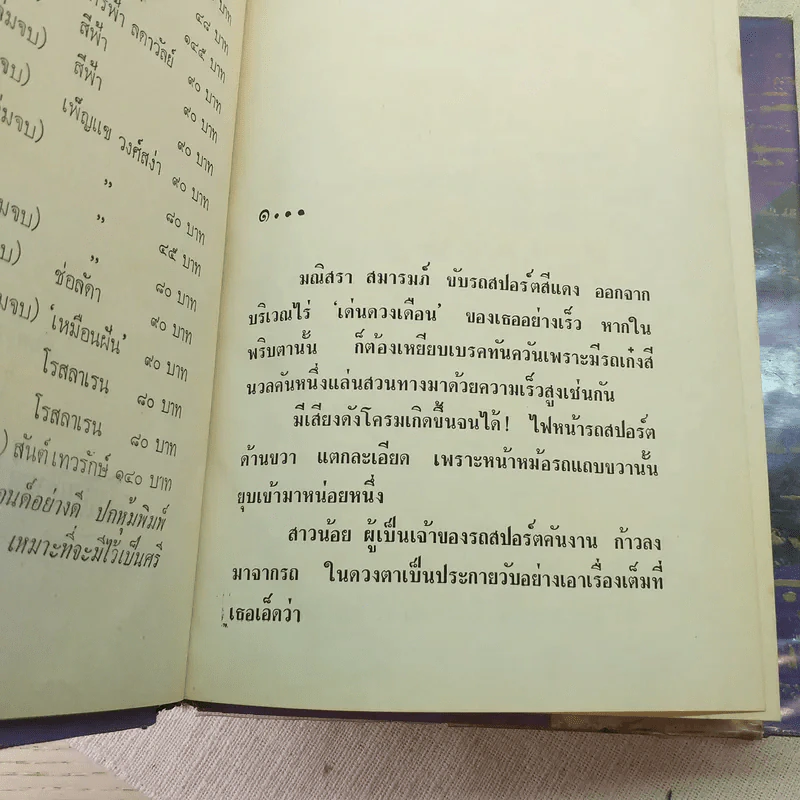 บาท
๔๘ บาท
ลดาวัลย์
๑๔๕ บาท
สีฟ้า
๙๐ บาท
สีฟ้า
๙๐ บาท
เพ็ญแข วงศ์สง่า
๙๐ บาท
” ๙๐ บาท
” ๘๐ บาท
” ๔๕ บาท
ช่อลัดา ๘๐ บาท
'เหมือนฝัน' ๙๐ บาท
โรสลาเรน ๙๐ บาท
โรสลาเรน ๘๐ บาท
๘๐ บาท
) สันต์ เทวรักษ์ ๑๔๐ บาท
อนด์อย่างดี ปกหุ้มพิมพ์
เหมาะที่จะมีไว้เป็นศรี
๑...
มณิสรา สมารมภ์ ขับรถสปอร์ตสีแดง ออกจาก
บริเวณไร่ ‘เด่นดวงเดือน’ ของเธออย่างเร็ว หากใน
พริบตานั้น ก็ต้องเหยียบเบรคทันควันเพราะมีรถเก๋งสี
นวลคันหนึ่งแล่นสวนทางมาด้วยความเร็วสูงเช่นกัน
มีเสียงดังโครมเกิดขึ้นจนได้! ไฟหน้ารถสปอร์ต
ด้านขวา แตกละเอียด เพราะหน้าหม้อรถแถบขวานั้น
ยุบเข้ามาหน่อยหนึ่ง
สาวน้อย ผู้เป็นเจ้าของรถสปอร์ตคันงาน ก้าวลง
มาจากรถ ในดวงตาเป็นประกายวับอย่างเอาเรื่องเต็มที่
เธอเอ็ดว่า